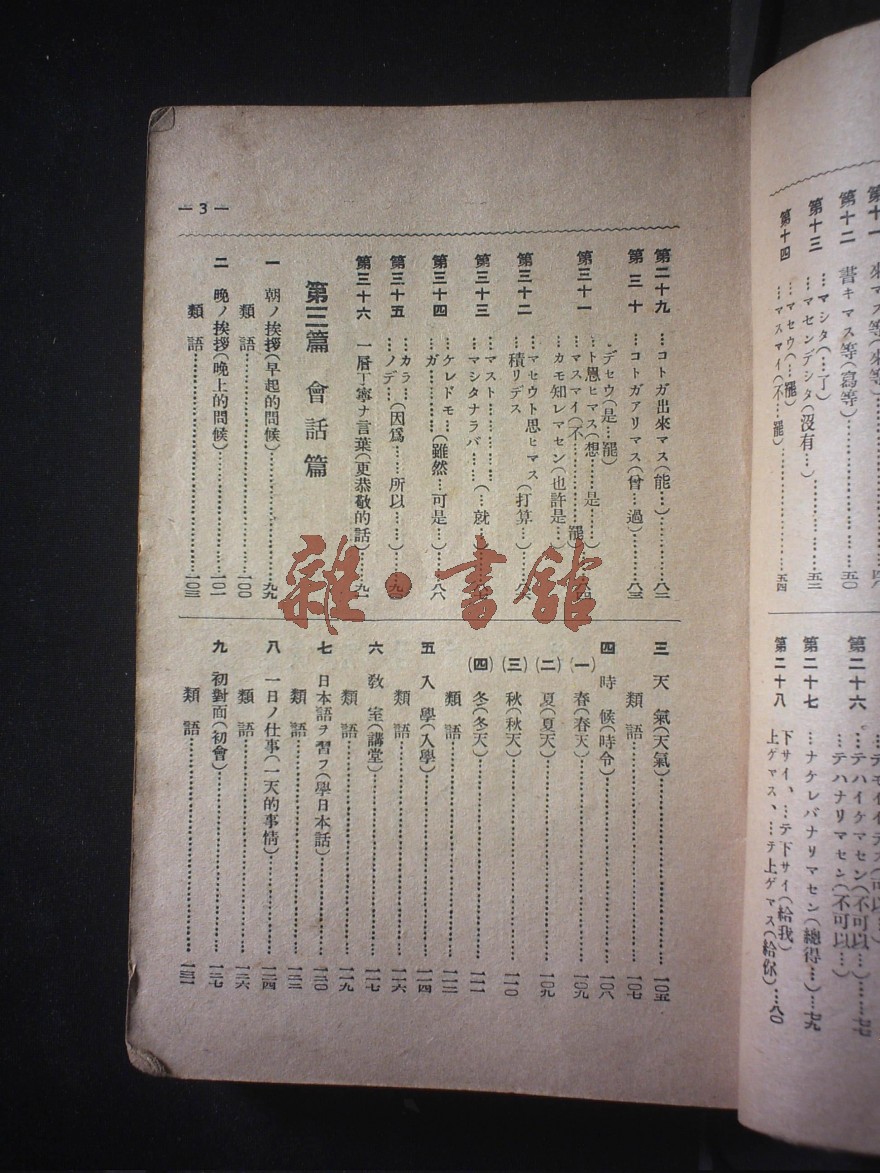 第十一 來マス等(來等)
第十二 書キマス等(寫等)……五〇
第十三 …マシタ(…了)
…マセンデシタ(沒有…)……五二
第十四 …マセウ(…罷)
…マスマイ(不…罷)……五四
第二十六 …テモイイデス(可以…)
…テハイケマセン(不可以…)…七七
…テハナリマセン(不可以…)
第二十七 …ナケレバナリマセン(總得…)…七九
第二十八 下サイ、…テ下サイ(給我)
上ゲマス、…テ上ゲマス(給你)…八〇
— 3 —
第二十九 …コトガ出來マス(能…)……八二
第三十 …コトガアリマス(曾…過)……八三
第三十一 …デセウ(是…罷)
…ト思ヒマス(想……是……)
…マスマイ(不……罷)……八四
…カモ知レマセン(也許是…)
第三十二 …マセウト思ヒマス(打算…)
…積リデス
第三十三 …マスト……
…マシタナラバ……(…就…)
第三十四 …ケレドモ…(雖然…可是…)……八八
…ガ……
第三十五 …カラ…(因爲……所以……)
…ノデ…
第三十六 一層丁寧ナ言葉(更恭敬的話)……九一
第三篇 會話篇
一 朝ノ挨拶(早起的問候)……九九
類語……一〇〇
二 晚ノ挨拶(晚上的問候)……一〇一
類語……一〇三
三 天氣(天氣)……一〇五
類語……一〇七
四 時候(時令)……一〇八
(一) 春(春天)……一〇九
(二) 夏(夏天)……一〇九
(三) 秋(秋天)……一一〇
(四) 冬(冬天)……一一一
類語……一一二
五 入學(入學)……一一四
類語……一一六
六 敎室(講堂)……一一七
類語……一一九
七 日本語ヲ習フ(學日本話)……一二〇
類語……一二二
八 一日ノ仕事(一天的事情)……一二四
類語……一二六
九 初對面(初會)……一二七
類語……一三一
雜·書館